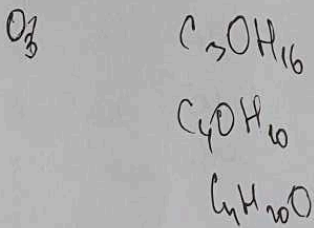 O₃ C₃OH₁₆
C₄OH₁₀
C₄H₁₀O